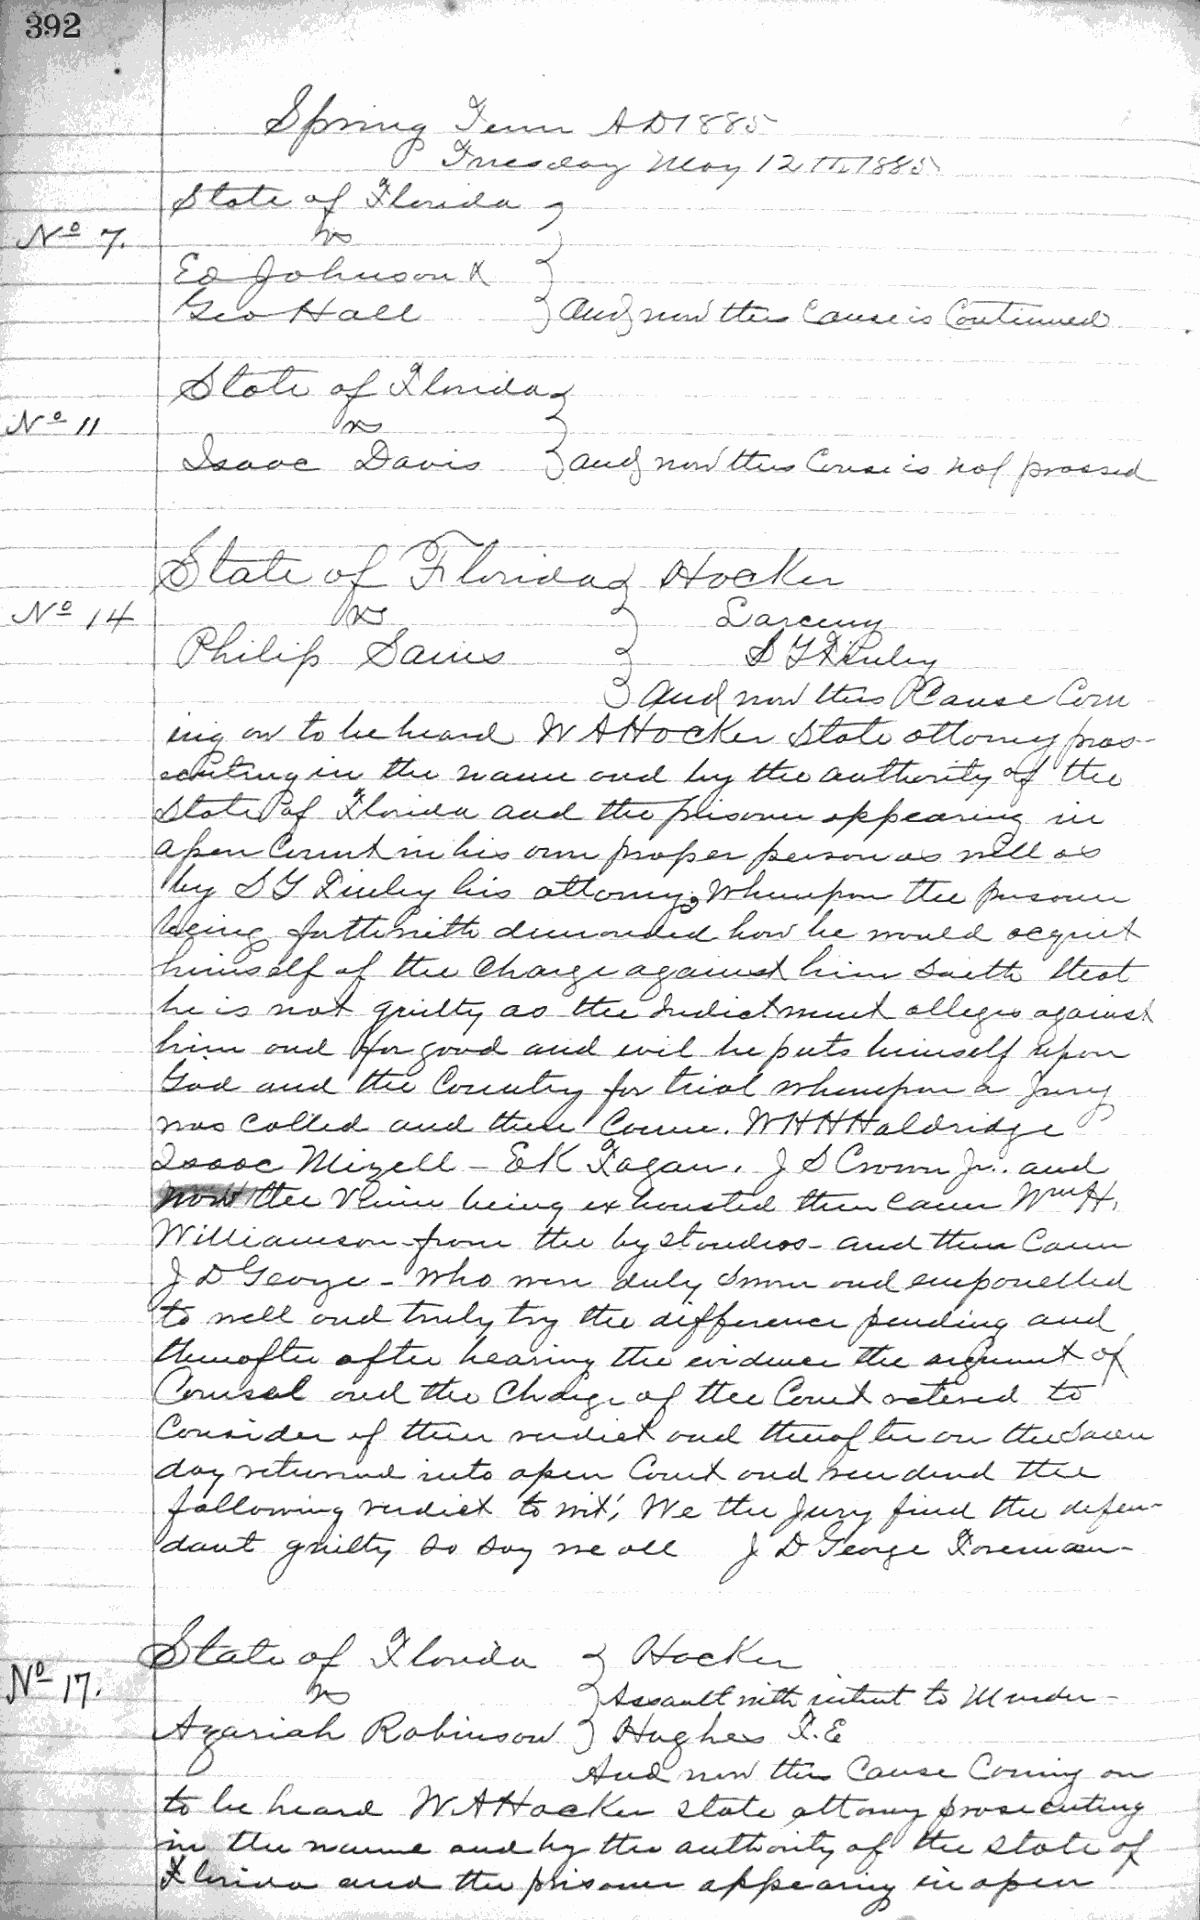 392
Spring Term AD 1885
Tuesday May 12th 1885
State of Florida
No 7. vs
Ed Johnson &
Geo Hall } and now this Cause is Continued
State of Florida
No 11 vs
Isaac Davis } and now this Cause is nol prossed
State of Florida } Hocker
No 14 vs } Larceny
Philip Sams } S G Finley
} and now this Cause Com
ing on to be heard W A Hocker State attorney pros-
ecuting in the name and by the authority of the
State of Florida and the prisoner appearing in
open Court in his own proper person as well as
by S G Finley his attorney, Whereupon the prisoner
being forthwith demanded how he would acquit
himself of the Charge against him saith that
he is not guilty as the Indictment alleges against
him and for good and evil he puts himself upon
God and the Country for trial whereupon a Jury
was called and there Came. W H H Haldridge
Isaac Mizell - E K Fagan. J S Crown Jr. and
now the Venire being exhausted then came Wm H.
Williamson from the bystanders - and then Came
J D George - Who were duly sworn and empanelled
to well and truly try the difference pending and
thereafter after hearing the evidence the argument of
Counsel and the Charge of the Court retired to
Consider of their verdict and thereafter on the Same
day returned into open Court and rendered the
following verdict to wit; We the Jury find the defen-
dant guilty so say we all J D George Foreman-
State of Florida } Hocker
No 17. vs } Assault with intent to Murder -
Azariah Robinson } Hughes F. E
And now this Cause Coming on
to be heard W A Hocker state attorney prosecuting
in the name and by the authority of the state of
Florida and the prisoner appearing in open